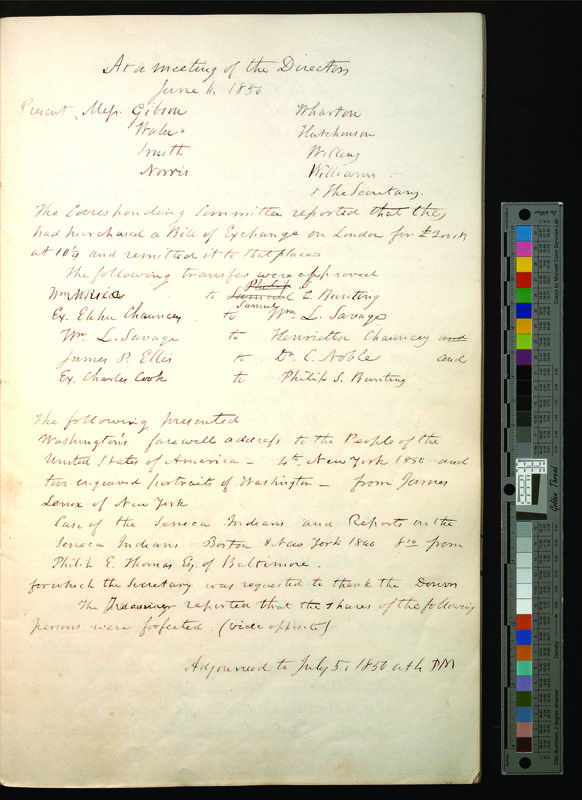 At a meeting of the Directors
June 11. 1850
Present Messrs. Gibson Wharton
Waln Hutchinson
Smith Willing
Norris Williams
& The Secretary.
The Corresponding Committee reported that they
had purchased a Bill of Exchange on London for
at 10¼ and remitted it to that place
The following transfers were approved
Wm to Samuel E Bunting
Philip S
Samuel
Ex. Elihu Chauncey to Wm. L. Savage
Wm. L. Savage to Henrietta Chauncey and
James P. Ellis to Dr. C. Noble and
Ex. Charles Cook to Philip S. Bunting
The following presented
Washington's farewell address to the People of the
United States of America - 4to. New York 1850 and
two engraved portraits of Washington - from James
Lenox of New York
Case of the Seneca Indians and Reports on the
Seneca Indians Boston & New York 1840 8vo from
Philip E. Thomas Esq. of Baltimore.
for which the Secretary was requested to thank the Donors
The Treasurer reported that the shares of the following
persons were forfeited. (vide opposite)
Adjourned to July 5. 1850 at 4 PM
Golden Thread